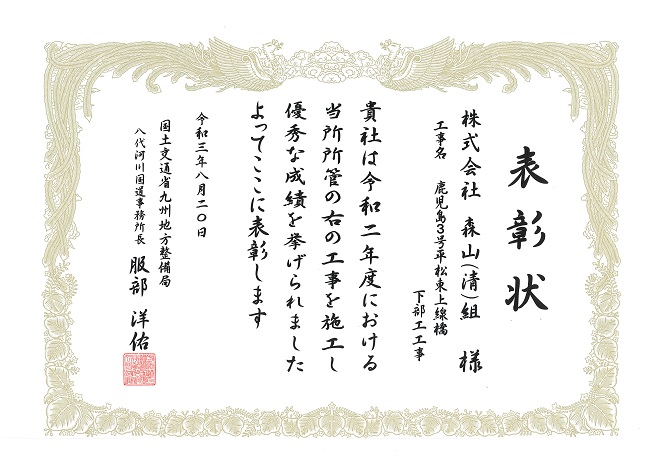 表彰状
株式会社 森山(清)組 様
工事名 鹿児島3号平松東上線橋
下部工工事
貴社は令和二年度における
当所所管の右の工事を施工し
優秀な成績を挙げられました
よってここに表彰します
令和三年八月二〇日
国土交通省九州地方整備局
八代河川国道事務所長 服部 洋佑